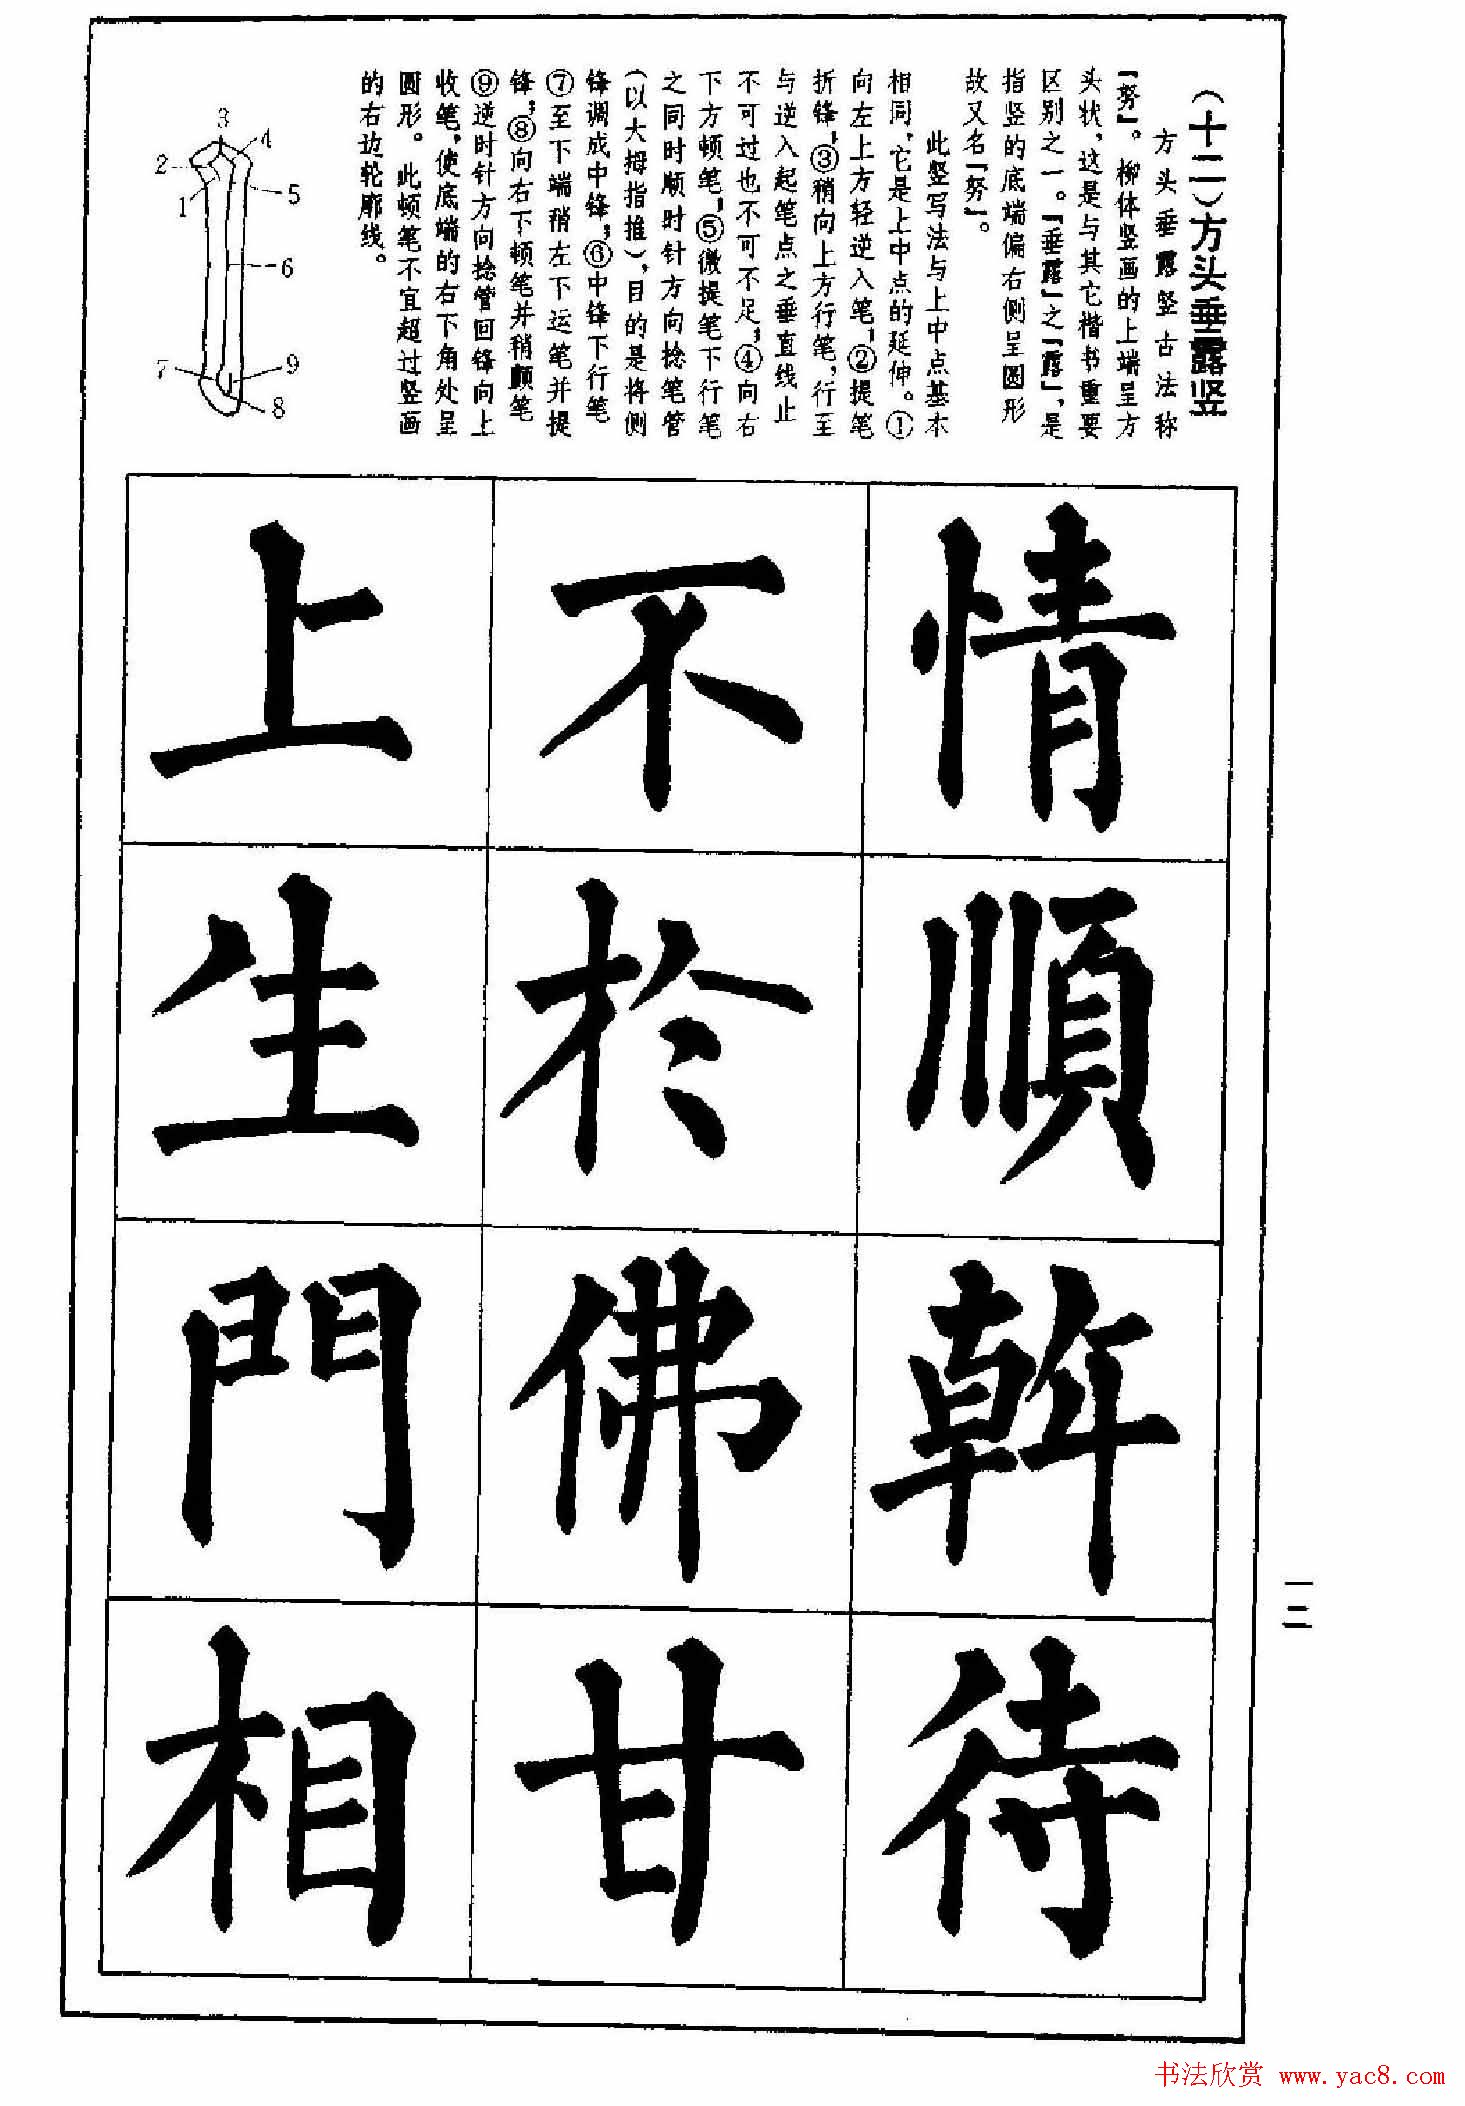 (十二)方头垂露竖
方头垂露竖古法称
「努」。柳体竖画的上端呈方
头状,这是与其它楷书重要
区别之一。「垂露」之「露」,是
指竖的底端偏右侧呈圆形
故又名「努」。
此竖写法与上中点基本
相同,它是上中点的延伸。①
向左上方轻逆入笔,②提笔
折锋,③稍向上方行笔,行至
与逆入起笔点之垂直线止
不可过也不可不足,④向右
下方顿笔,⑤微提笔下行笔
之同时顺时针方向捻笔管
(以大拇指推),目的是将侧
锋调成中锋,⑥中锋下行笔
⑦至下端稍左下运笔并提
锋,⑧向右下顿笔并稍顾笔
⑨逆时针方向捻管回锋向上
收笔,使底端的右下角处呈
圆形。此顿笔不宜超过竖画
的右边轮廓线。
1
2
3
4
5
6
7
8
9
情
順
幹
待
不
於
佛
甘
上
生
門
相
一二
书法欣赏 www.yac8.com